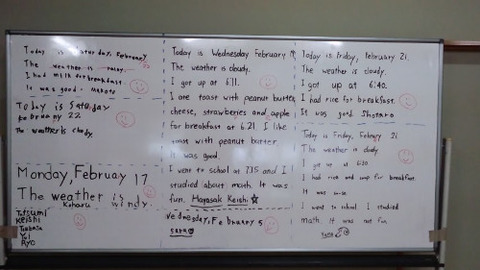 Today is Saturday, February
The weather is
I had milk for breakfast.
It was good.
Today is Saturday
February 22
The weather is cloudy.
Monday, February 17
The weather is windy.
Kotaro
Tatsumi
Keishi
Tsubasa
Yui
Ryo
Today is Wednesday February
The weather is cloudy.
I got up at 6:11.
I ate toast with peanut butter,
cheese, strawberries and apple
for breakfast at 6:21. I like
toast with peanut butter.
It was good.
I went to school at 7:15 and I
studied about math. It was
fun. Keishi
Wednesday, February 5
Today is Friday, February 21.
The weather is cloudy.
I got up at 6:40.
I had rice for breakfast.
It was good. Shotaro
Today is Friday, February 21
The weather is cloudy
I got up at 6:30
I had rice and soup for breakfast.
It was
I went to school I studied
math. It was not fun.